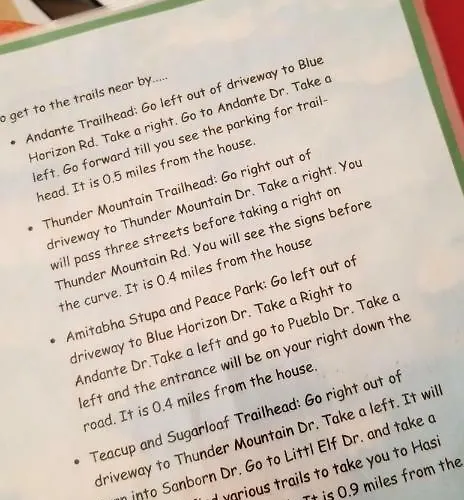 o get to the trails near by.....
• Andante Trailhead: Go left out of driveway to Blue
Horizon Rd. Take a right. Go to Andante Dr. Take a
left. Go forward till you see the parking for trail-
head. It is 0.5 miles from the house.
• Thunder Mountain Trailhead: Go right out of
driveway to Thunder Mountain Dr. Take a right. You
will pass three streets before taking a right on
Thunder Mountain Rd. You will see the signs before
the curve. It is 0.4 miles from the house
• Amitabha Stupa and Peace Park: Go left out of
driveway to Blue Horizon Dr. Take a Right to
Andante Dr.Take a left and go to Pueblo Dr. Take a
left and the entrance will be on your right down the
road. It is 0.4 miles from the house.
• Teacup and Sugarloaf Trailhead: Go right out of
driveway to Thunder Mountain Dr. Take a left. It will
into Sanborn Dr. Go to Littl Elf Dr. and take a
various trails to take you to Hasi
It is 0.9 miles from the